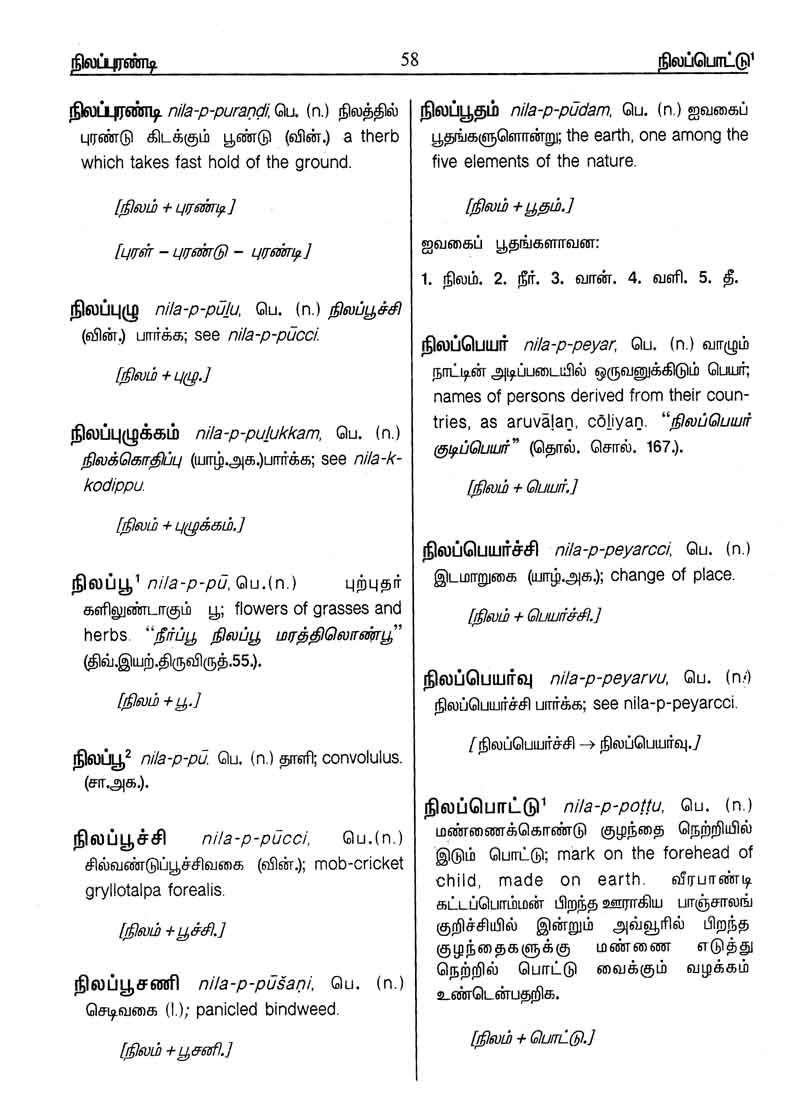 நிலப்புரண்டி
58
நிலப்பொட்டு¹
நிலப்புரண்டி nila-p-puraṇḍi, பெ. (n.) நிலத்தில்
புரண்டு கிடக்கும் பூண்டு (வின்.) a therb
which takes fast hold of the ground.
[நிலம் + புரண்டி]
[புரள் – புரண்டு – புரண்டி]
நிலப்புழு nila-p-pūḻu, பெ. (n.) நிலப்பூச்சி
(வின்.) பார்க்க; see nila-p-pūcci.
[நிலம் + புழு.]
நிலப்புழுக்கம் nila-p-puḻukkam, பெ. (n.)
நிலக்கொதிப்பு (யாழ்.அக.)பார்க்க; see nila-k-
kodippu.
[நிலம் + புழுக்கம்.]
நிலப்பூ¹ nila-p-pū, பெ.(n.) புற்புதர்
களிலுண்டாகும் பூ; flowers of grasses and
herbs. “நீர்ப்பூ நிலப்பூ மரத்திலொண்பூ”
(திவ்.இயற்.திருவிருத்.55.).
[நிலம் + பூ.]
நிலப்பூ² nila-p-pū. பெ. (n.) தாளி; convolulus.
(சா.அக.).
நிலப்பூச்சி nila-p-pūcci, பெ.(n.)
சில்வண்டுப்பூச்சிவகை (வின்.); mob-cricket
gryllotalpa forealis.
[நிலம் + பூச்சி.]
நிலப்பூசணி nila-p-pūšaṇi, பெ. (n.)
செடிவகை (l.); panicled bindweed.
[நிலம் + பூசனி.]
நிலப்பூதம் nila-p-pūdam, பெ. (n.) ஐவகைப்
பூதங்களுளொன்று; the earth, one among the
five elements of the nature.
[நிலம் + பூதம்.]
ஐவகைப் பூதங்களாவன:
1. நிலம். 2. நீர். 3. வான். 4. வளி. 5. தீ.
நிலப்பெயர் nila-p-peyar, பெ. (n.) வாழும்
நாட்டின் அடிப்படையில் ஒருவனுக்கிடும் பெயர்;
names of persons derived from their coun-
tries, as aruvāḷaṉ, cōḻiyaṉ. “நிலப்பெயர்
குடிப்பெயர்” (தொல். சொல். 167.).
[நிலம் + பெயர்.]
நிலப்பெயர்ச்சி nila-p-peyarcci, பெ. (n.)
இடமாறுகை (யாழ்.அக.); change of place.
[நிலம் + பெயர்ச்சி.]
நிலப்பெயர்வு nila-p-peyarvu, பெ. (n.)
நிலப்பெயர்ச்சி பார்க்க; see nila-p-peyarcci.
[ நிலப்பெயர்ச்சி → நிலப்பெயர்வு.]
நிலப்பொட்டு¹ nila-p-poṭṭu, பெ. (n.)
மண்ணைக்கொண்டு குழந்தை நெற்றியில்
இடும் பொட்டு; mark on the forehead of
child, made on earth. வீரபாண்டி
கட்டப்பொம்மன் பிறந்த ஊராகிய பாஞ்சாலங்
குறிச்சியில் இன்றும் அவ்வூரில் பிறந்த
குழந்தைகளுக்கு மண்ணை எடுத்து
நெற்றில் பொட்டு வைக்கும் வழக்கம்
உண்டென்பதறிக.
[நிலம் + பொட்டு.]